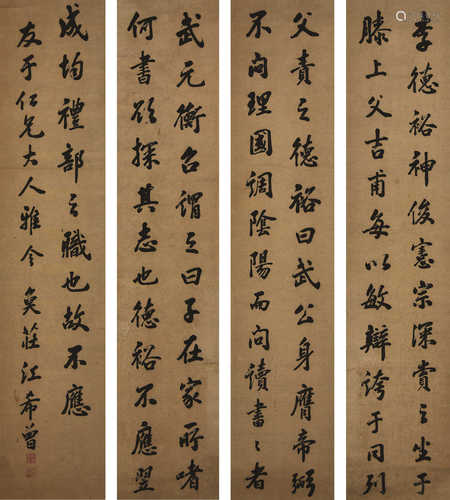 李德裕神俊憲宗深賞之坐于
膝上父吉甫每以敏辯誇于同列
父責之德裕曰武公身膺帝弼
不問理國調陰陽而問讀書〻者
武元衡召謂之曰子在家所嗜
何書欲探其志也德裕不應翌
成均禮部之職也故不應
友于仁兄大人雅令 奐莊江希曾